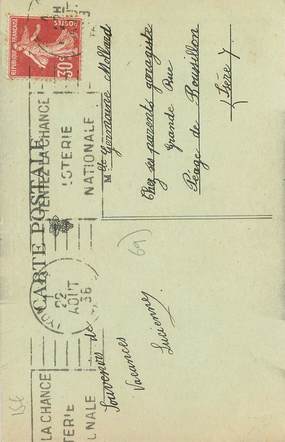 CARTE POSTALE
RÉPUBLIQUE FRANÇAISE
POSTES
30c
TENTEZ LA CHANCE
LOTERIE
NATIONALE
22
AOUT
36
LA CHANCE
TERIE
NALE
Souvenirs de
Vacances
Lucienne
69)
Mlle Germaine Mollard
Chez ses parents garagiste
Grande Rue
Péage de Roussillon
(Isère)